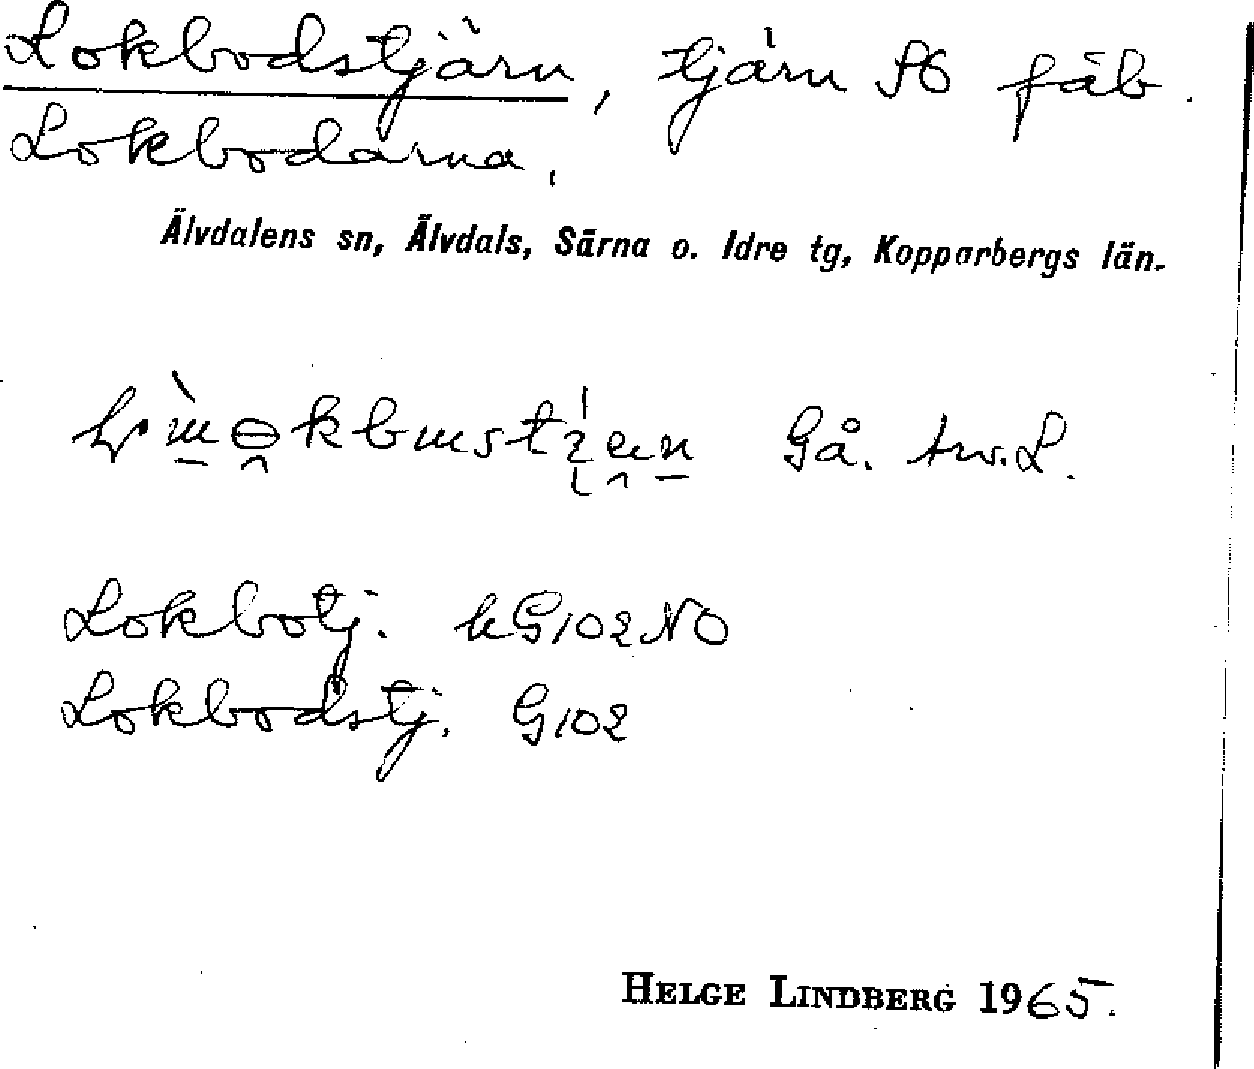 Lokbodstjärn, tjärn SO fäb.
Lokbodarna.
Älvdalens sn, Älvdals, Särna o. Idre tg, Kopparbergs län.
Gå. tw. L.
Lokbotj. kG102NO
Lokbodstj. G102
HELGE LINDBERG 1965.